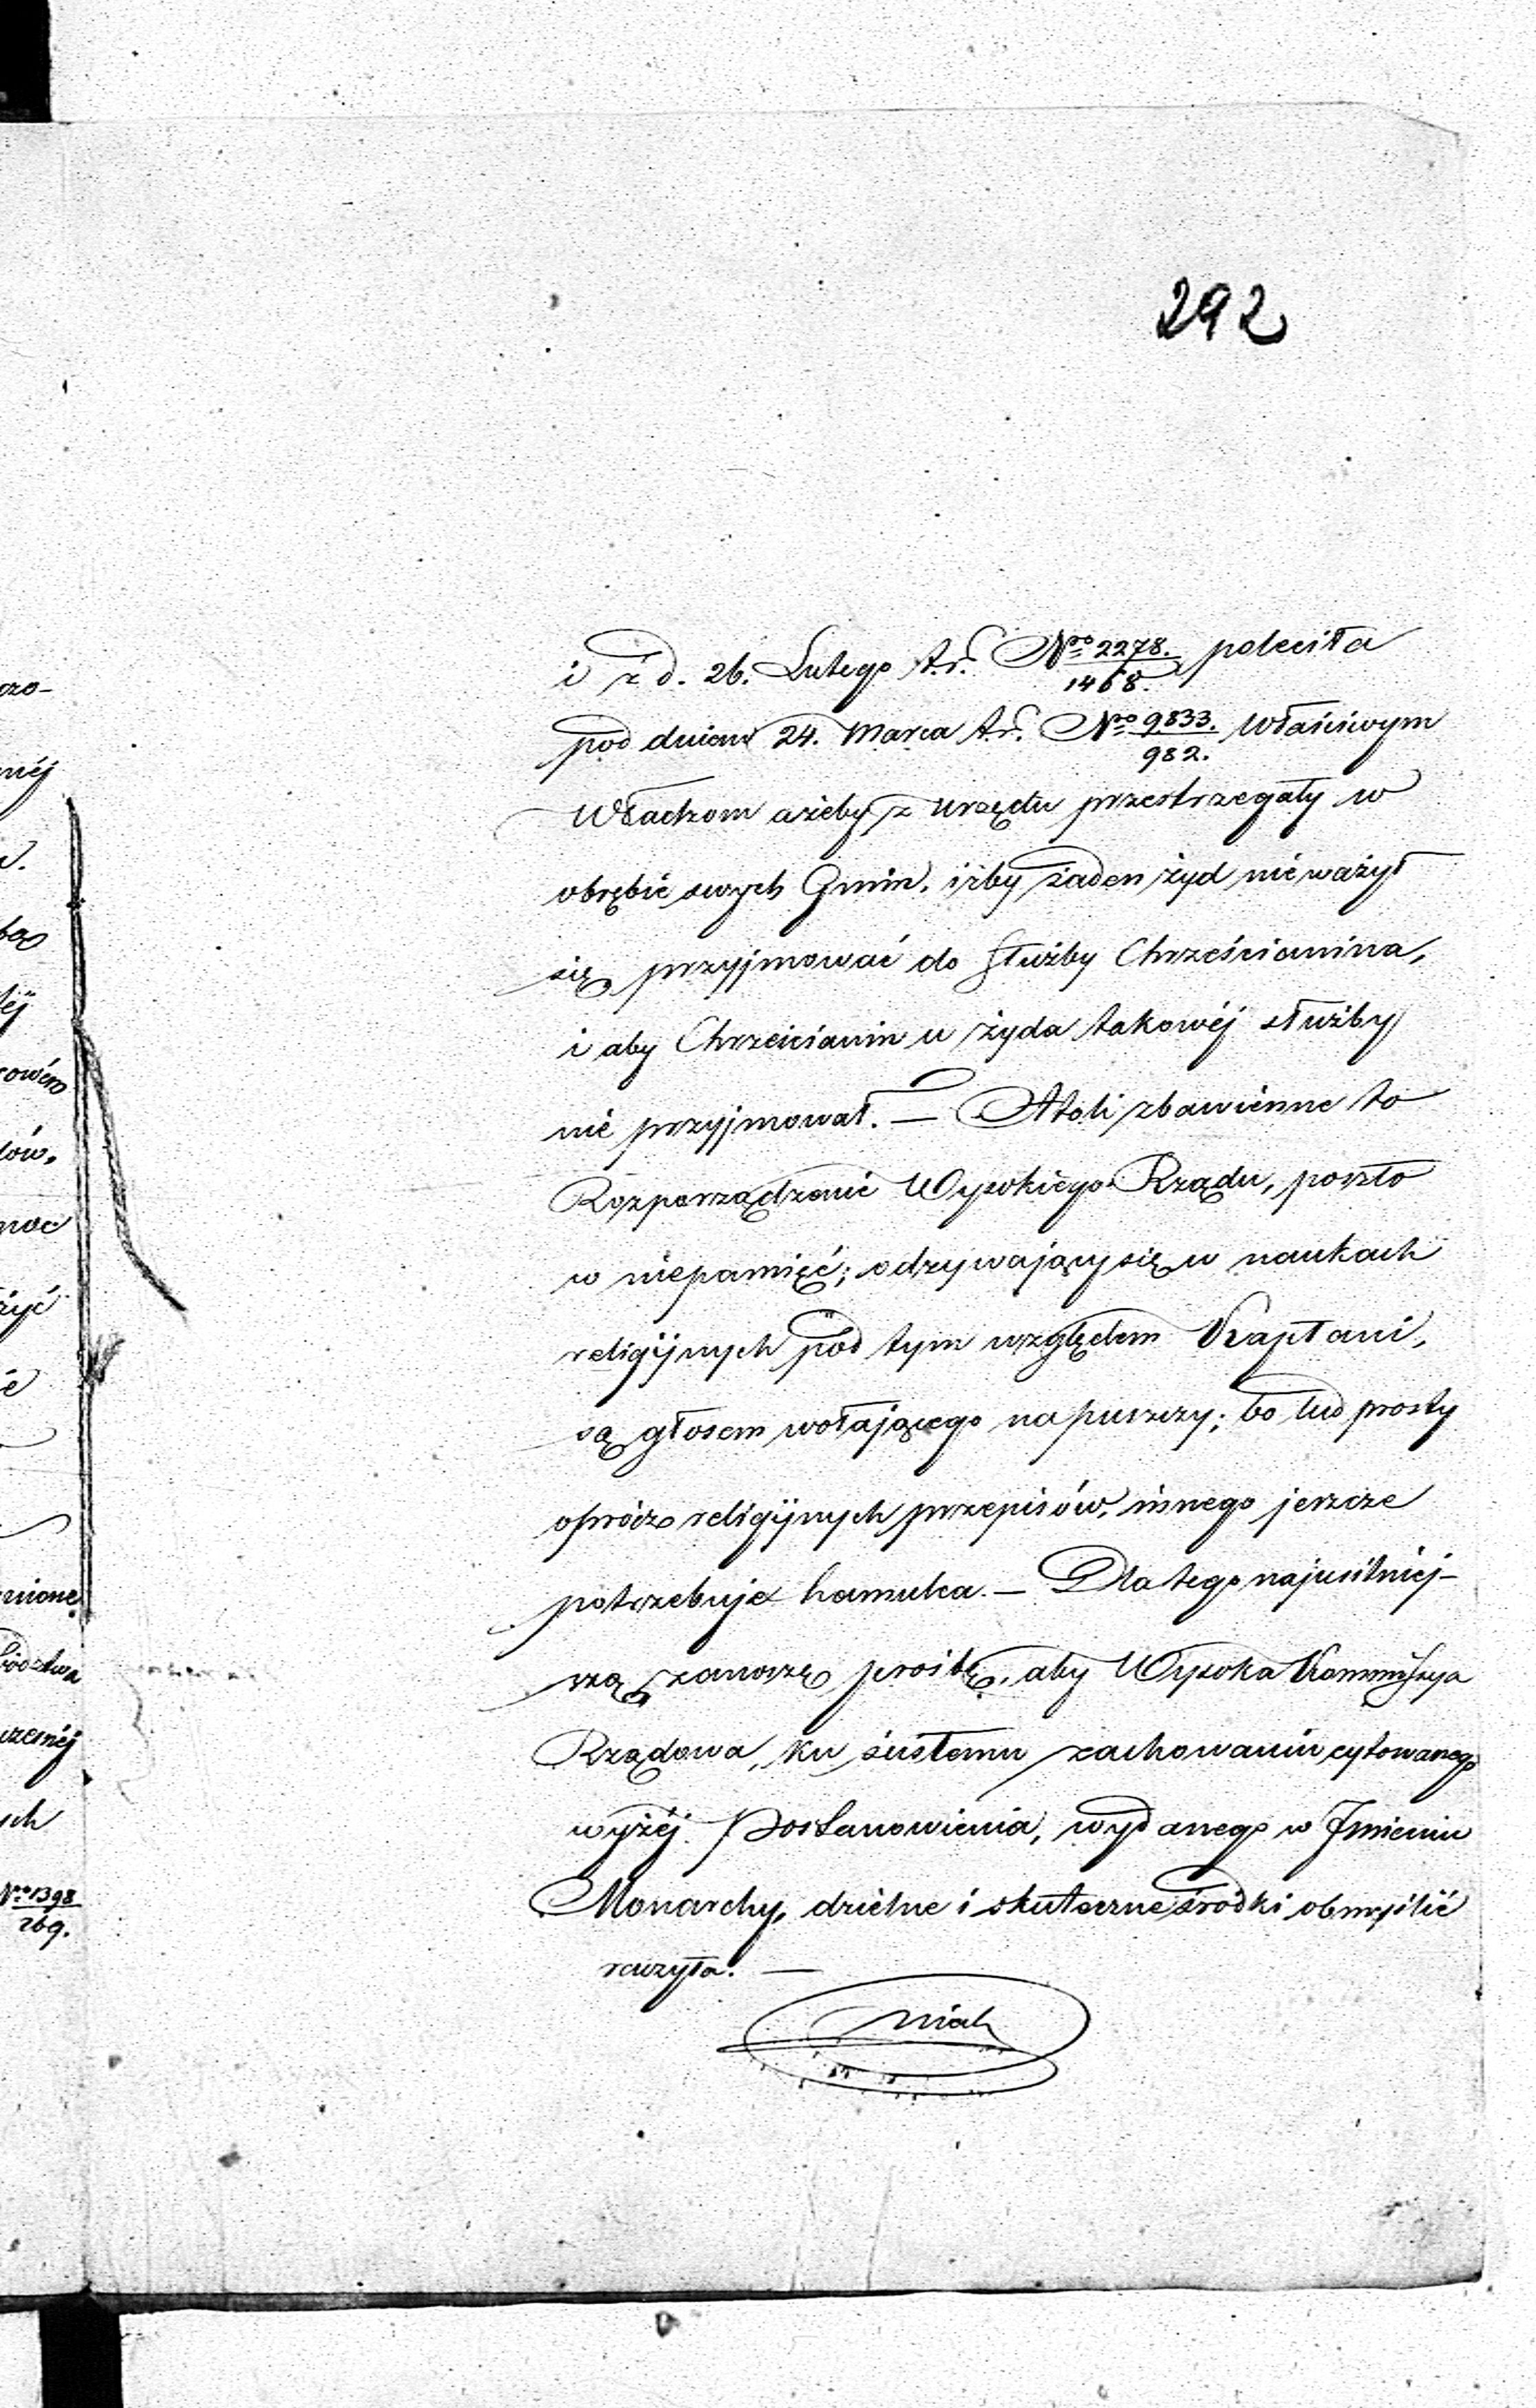 292
i z d. 26. Lutego t.r. No 2278./1468. poleciła
pod dniem 24. Marca t.r. No 9833./982. właściwym
Władzom ażeby z urzędu przestrzegały w
obrębie swych Gmin, iżby żaden żyd nie ważył
się przyjmować do służby Chrześcianina,
i aby Chrześcianin u żyda takowéj służby
nie przyjmował. — Atoli zbawienne to
Rozporządzenie Wysokiego Rządu, poszło
w niepamięć; odzywający się w naukach
religijnych pod tym względem Kapłani,
są głosem wołającego na puszczy; bo lud prosty
oprócz religijnych przepisów, innego jeszcze
potrzebuje hamulca. — Dla tego najusilniej-
szą zanoszę prośbę, aby Wysoka Kommissya
Rządowa, ku ścisłemu zachowaniu cytowanego
wyżéj Postanowienia, wydanego w Imieniu
Monarchy, dzielne i skuteczne środki obmyślić
raczyła. —
néj
żyć
wyczesnéj
ych
No 1398/269.